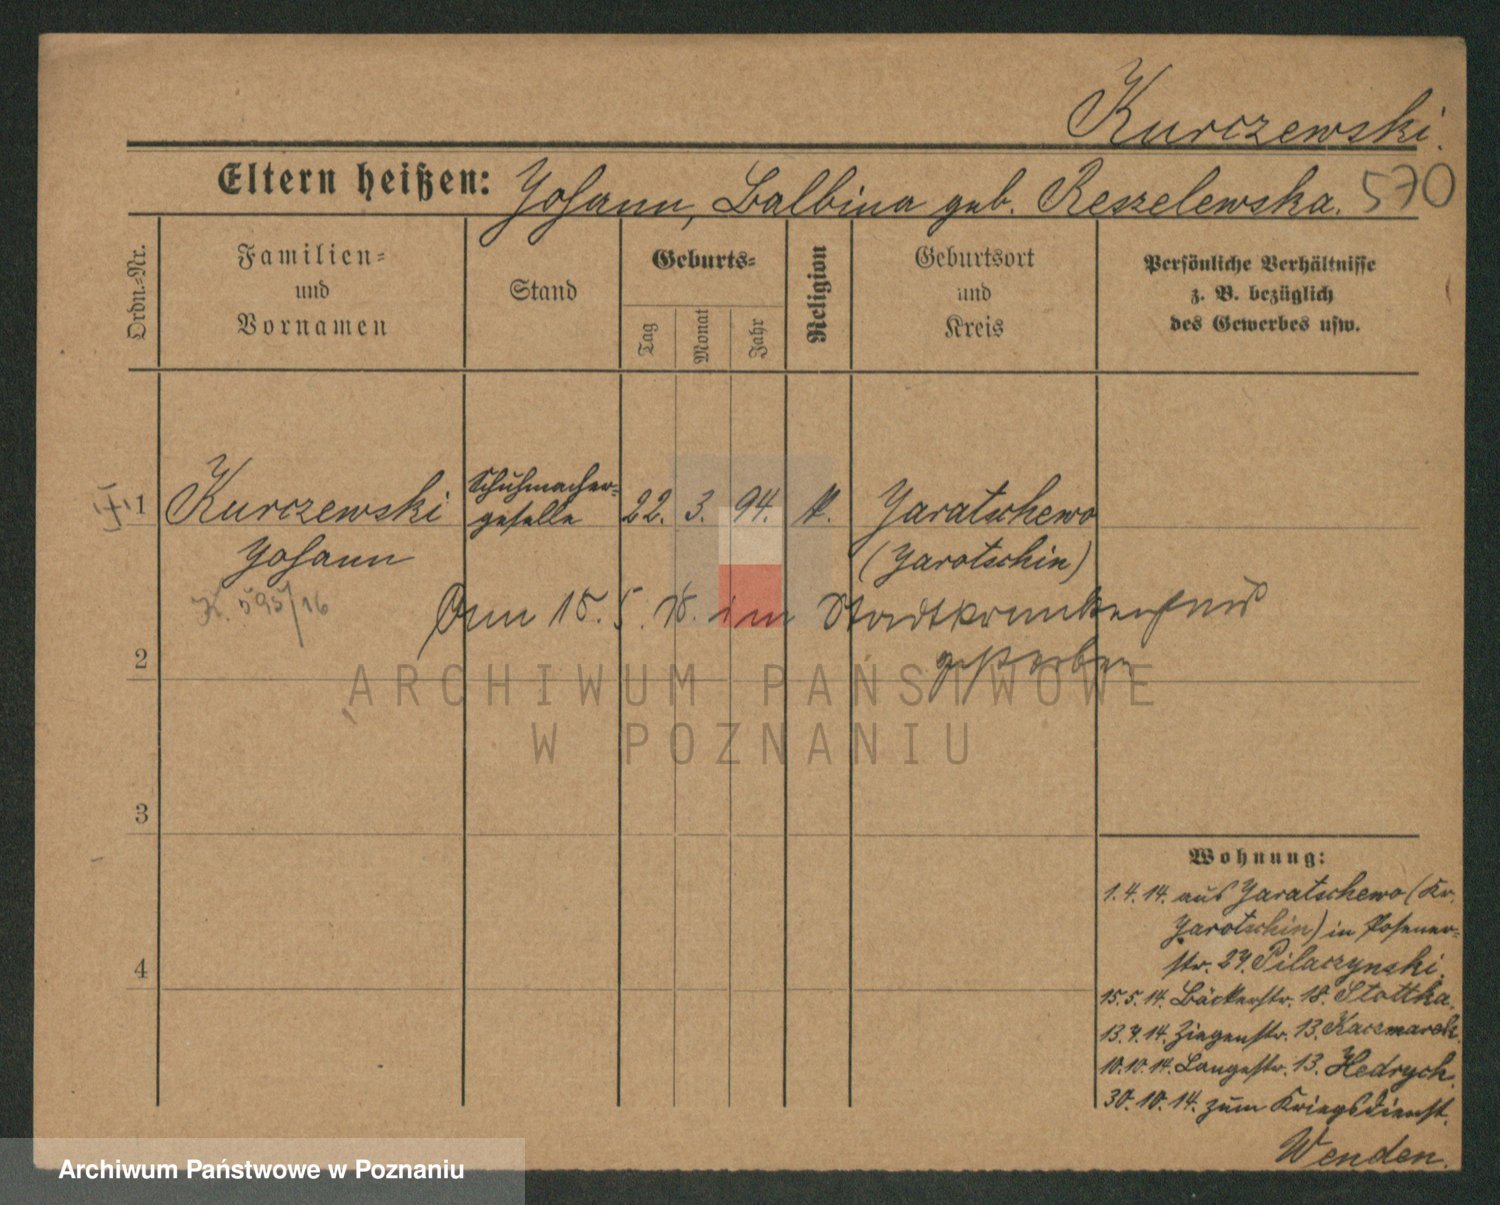 Kurczewski.
Eltern heißen: Johann, Balbina geb. Reszelewska. 570
Ordn.-Nr.
Familien-
und
Vornamen
Stand
Geburts-
Tag
Monat
Jahr
Religion
Geburtsort
und
Kreis
Persönliche Verhältnisse
z. B. bezüglich
des Gewerbes usw.
1 Kurczewski Schuhmacher- 22. 3. 94. K. Jaratschewo
geselle
Johann (Jarotschin)
K. 595/16
Am 15. 5. 16. im Stadtkrankenhaus
gestorben
2
3
4
Wohnung:
1.4.14. aus Jaratschewo (Kr.
Jarotschin) in Posener-
str. 27. Pilaczynski.
15.5.14. Bäckerstr. 18. Stottka.
13.7.14. Ziegenstr. 13. Kaczmarek.
10.10.14. Langestr. 13. Hedrych.
30.10.14. zum Kriegsdienst.
Wenden.
ARCHIWUM PAŃSTWOWE
W POZNANIU
Archiwum Państwowe w Poznaniu